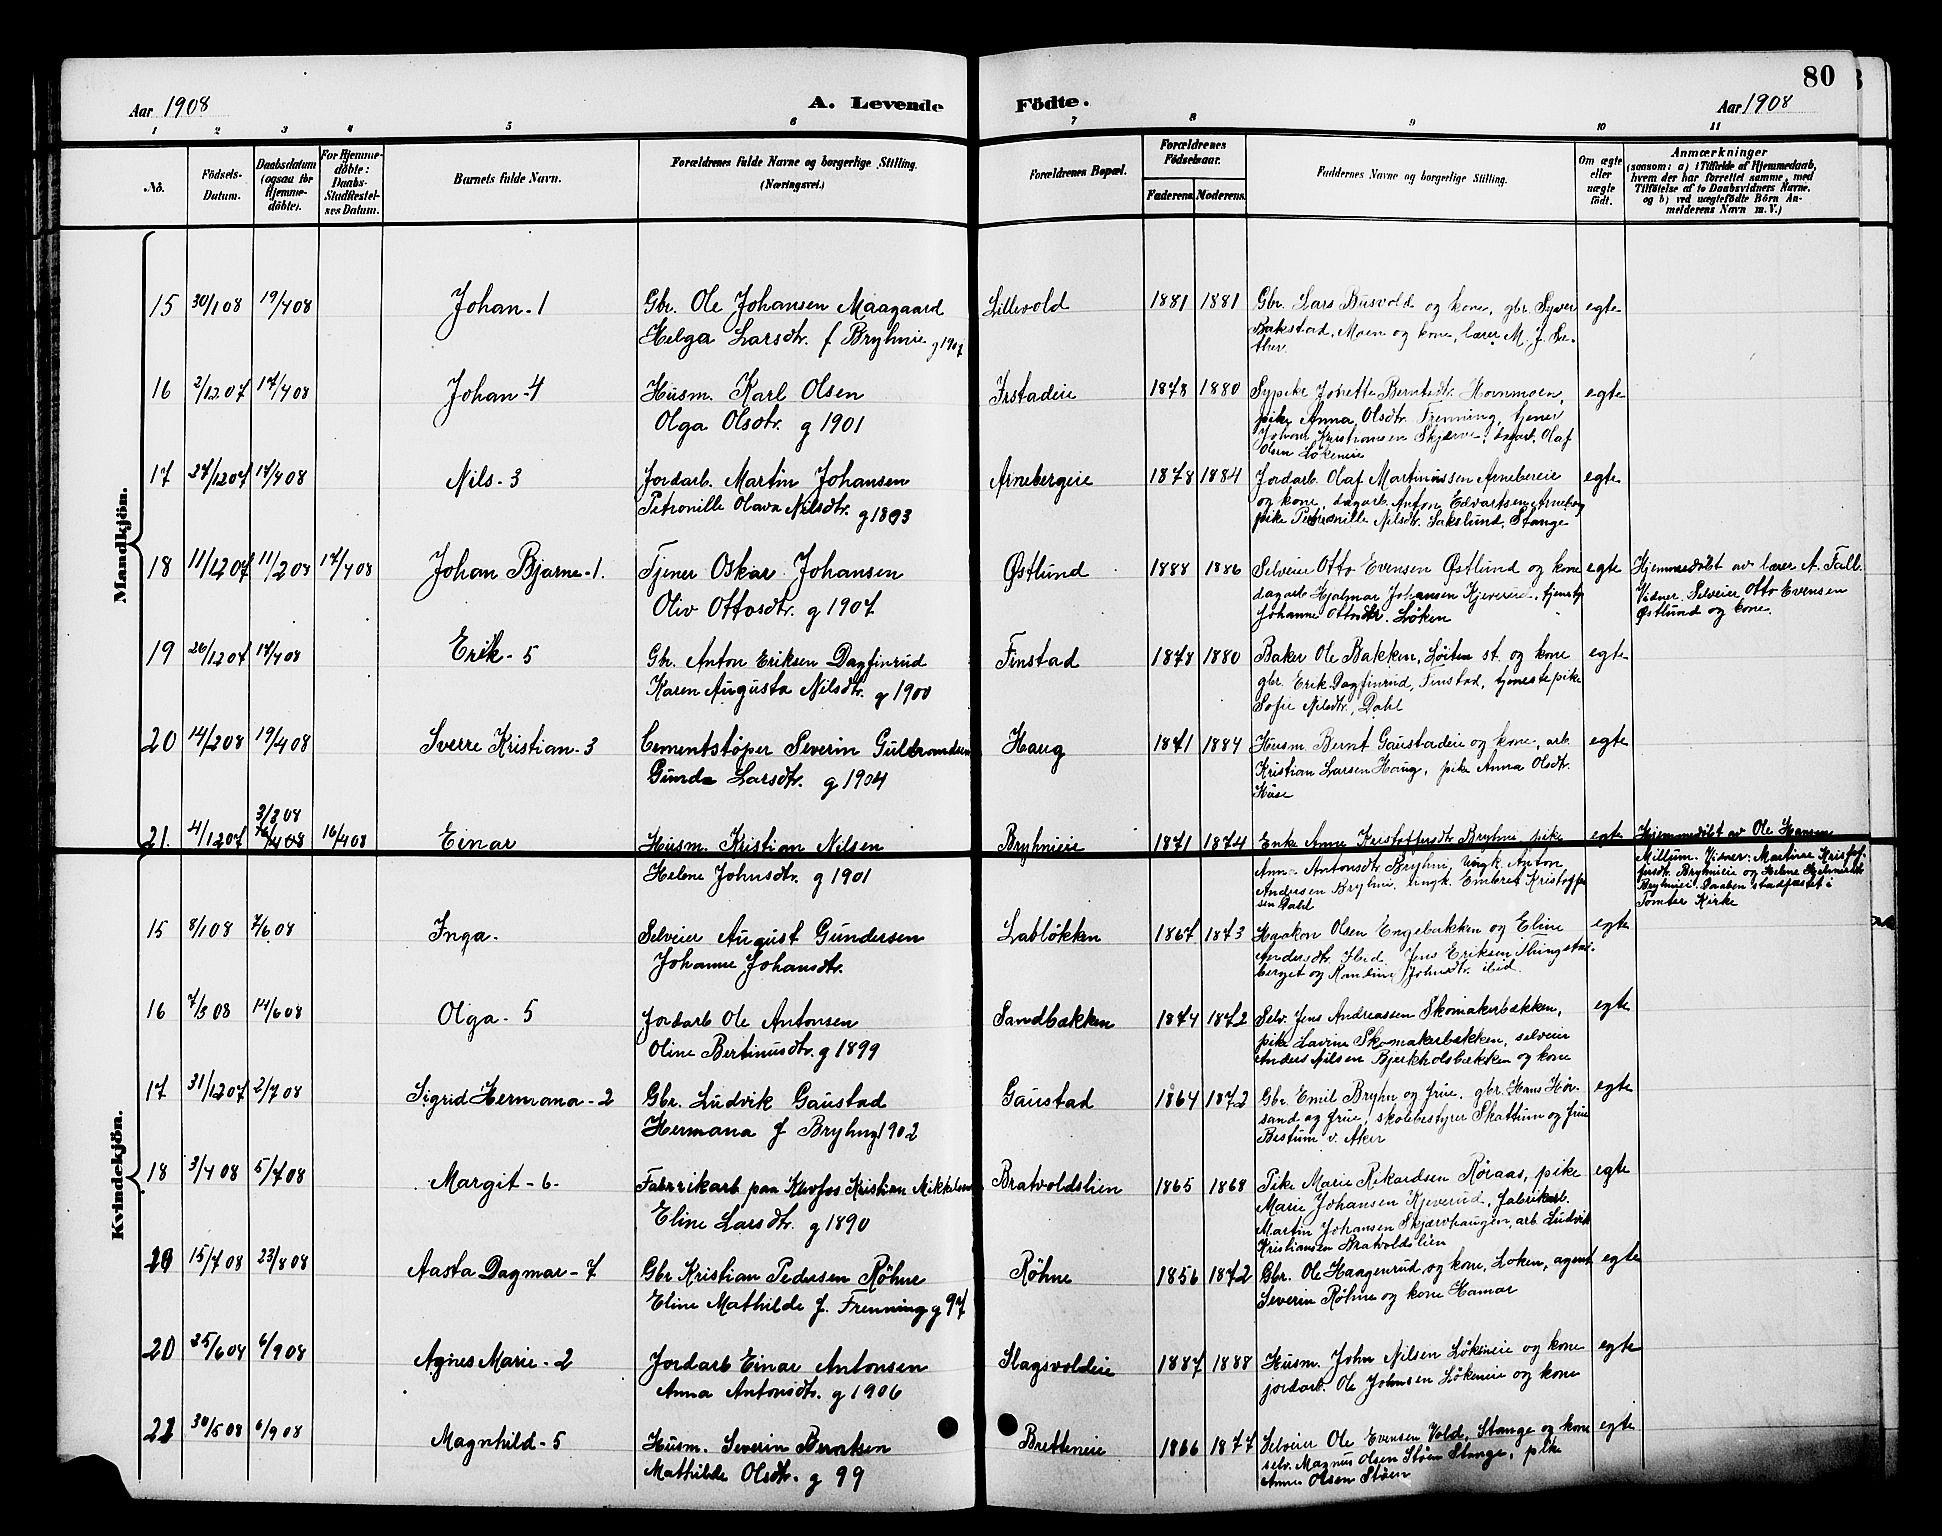 80
Aar 1908 A. Levende Födte. Aar 1908
1 2 3 4 5 6 7 8 9 10 11
No.
Födsels-Datum.
Daabsdatum (ogsaa for Hjemme-döbte).
For Hjemme-döbte: Daabs-Stadfæstel-ses Datum.
Barnets fulde Navn.
Forældrenes fulde Navne og borgerlige Stilling. (Næringsvei.)
Forældrenes Bopæl.
Forældrenes Födselsaar.
Faderens Moderens.
Faddernes Navne og borgerlige Stilling.
Om ægte eller uægte födt.
Anmærkninger
(saasom: a) i Tilfælde af Hjemmedaab,
hvem der har forrettet samme, med
Tilföielse af to Daabsvidners Navne,
og b) ved uægtefödte Börn An-
melderens Navn m. V.)
Mandkjön.
15 30/1 08 19/4 08 Johan - 1 Gbr. Ole Johansen Maagaard Lillevold 1881 1881 Gbr. Lars Busvold og kone, gbr Syver egte
Helga Larsdtr. f Bryhnie g 1907 Bakstad, Moen og kone, lærer M. J. Sæ-
ther
16 2/12 07 17/4 08 Johan - 4 Husm. Karl Olsen Irstadeie 1878 1880 Sypike Jorette Berntsdtr. Hornmoen, egte
Olga Olsdtr. g 1901 pike Anna Olsdtr. Frenning, tjener
Johan Kristiansen Skjærve, dagarb. Olaf
Olsen Løkeneie
17 27/12 07 17/4 08 Nils - 3 Jordarb. Martin Johansen Arnebergeie 1878 1884 Jordarb. Olaf Martinussen Arnebereie egte
Petronille Olava Nilsdtr. g 1893 og kone, dagarb Anton Edvartsen Arneberg
pike Petronille Nilsdtr. Lakslund, Stange
18 11/12 07 11/2 08 17/4 08 Johan Bjarne - 1. Tjener Oskar Johansen Østlund 1888 1886 Selveier Otto Evensen Østlund og kone egte Hjemmedöbt av lærer A. Fall.
Oliv Ottosdtr. g 1907 dagarb Hjalmar Johansen Kjeverud, tjenestp Vidner. Selveier Otto Evensen
Johanne Ottosdtr. Løken Østlund og kone.
19 26/12 07 17/4 08 Erik - 5 Gbr. Anton Eriksen Dagfinrud Finstad 1878 1880 Baker Ole Bakken, Løiten st. og kone egte
Karen Augusta Nilsdtr. g 1900 gbr. Erik Dagfinrud, Finstad, tjenestepike
Sofie Nilsdtr, Dahl
20 14/2 08 19/4 08 Sverre Kristian - 3 Cementstøper Severin Gulbrandsen Haug 1871 1884 Husm. Bernt Gaustadeie og kone, arb. egte
Gunda Larsdtr. g 1904 Kristian Larsen Haug, pike Anna Olsdtr.
21. 4/12 07 3/3 08 16/4 08 16/4 08 Einar Husm. Kristian Nilsen Bryhnieie 1871 1874 Enke Anne Kristoffersdtr Bryhni, pike egte Hjemmedöbt av Ole Hansen
Helene Johnsdtr. g 1901 Anne Antonsdtr Bryhni, Ungk. Anton Millum. Vidner: Martine Kristof-
Andersen Bryhni, ungk. Embret Kristoffer fersdtr. Bryhnieie og Helene
sen Dahl Bryhnieie. Daaben stadfæstet i
Tomter Kirke
Kvindekjön.
15 8/1 08 7/6 08 Inga. Selveier August Gundersen Labløkken 1867 1873 Haakon Olsen Engebakken og Eline egte
Johanne Johansdtr. Andersdtr. Ibid. Jens Eriksen
berget og Karoline Johnsdtr. ibid.
16 7/3 08 14/6 08 Olga - 5 Jordarb Ole Antonsen Sandbakken 1874 1872 Selv. Jens Andreassen Skomakerbakken, egte
Oline Bertinusdtr. g 1899 pike Lavine Skomakerbakken, selveier
Anders Nilsen Bjerkholsbakken og kone
17 31/12 07 2/7 08 Sigrid Hermana - 2 Gbr. Ludvik Gaustad Gaustad 1864 1872 Gbr Emil Bryhn og frue, gbr. Hans Hør- egte
Hermana f Bryhn g 1902 sand og frue, skolebestyrer Skattum og frue
Bestum v. Aker
18 3/4 08 5/7 08 Margit - 6. Fabrikarb paa Klevfos Kristian Mikkelsen Bratvoldslien 1865 1868 Pike Marie Rikardsen Røraas, pike egte
Eline Larsdtr. g 1890 Marie Johansen Kjeverud, fabrikarb.
Martin Johansen Skjærvhaugen, arb. Ludvik
Kristiansen Bratvoldslien
19 15/7 08 23/8 08 Aasta Dagmar - 7 Gbr Kristian Pedersen Røhne Røhne 1856 1872 Gbr. Ole Haagenrud og kone, Løken, agent egte
Eline Mathilde f. Frenning g 97 Severin Røhne og kone Hamar
20 25/6 08 6/9 08 Agnes Marie - 2 Jordarb Einar Antonsen Slagsvoldeie 1887 1888 Husm. John Nilsen Løkeneie og kone egte
Anna Antonsdtr. g 1906 jordarb. Ole Johnsen Løkeneie og kone
21 30/5 08 6/9 08 Magnhild - 5 Husm. Severin Berntsen Bretteneie 1866 1877 Selveier Ole Evensen Vold, Stange og kone egte
Mathilde Olsdtr. g 99 selv. Magnus Olsen Støen Stange, pike
Anne Olsen Støen